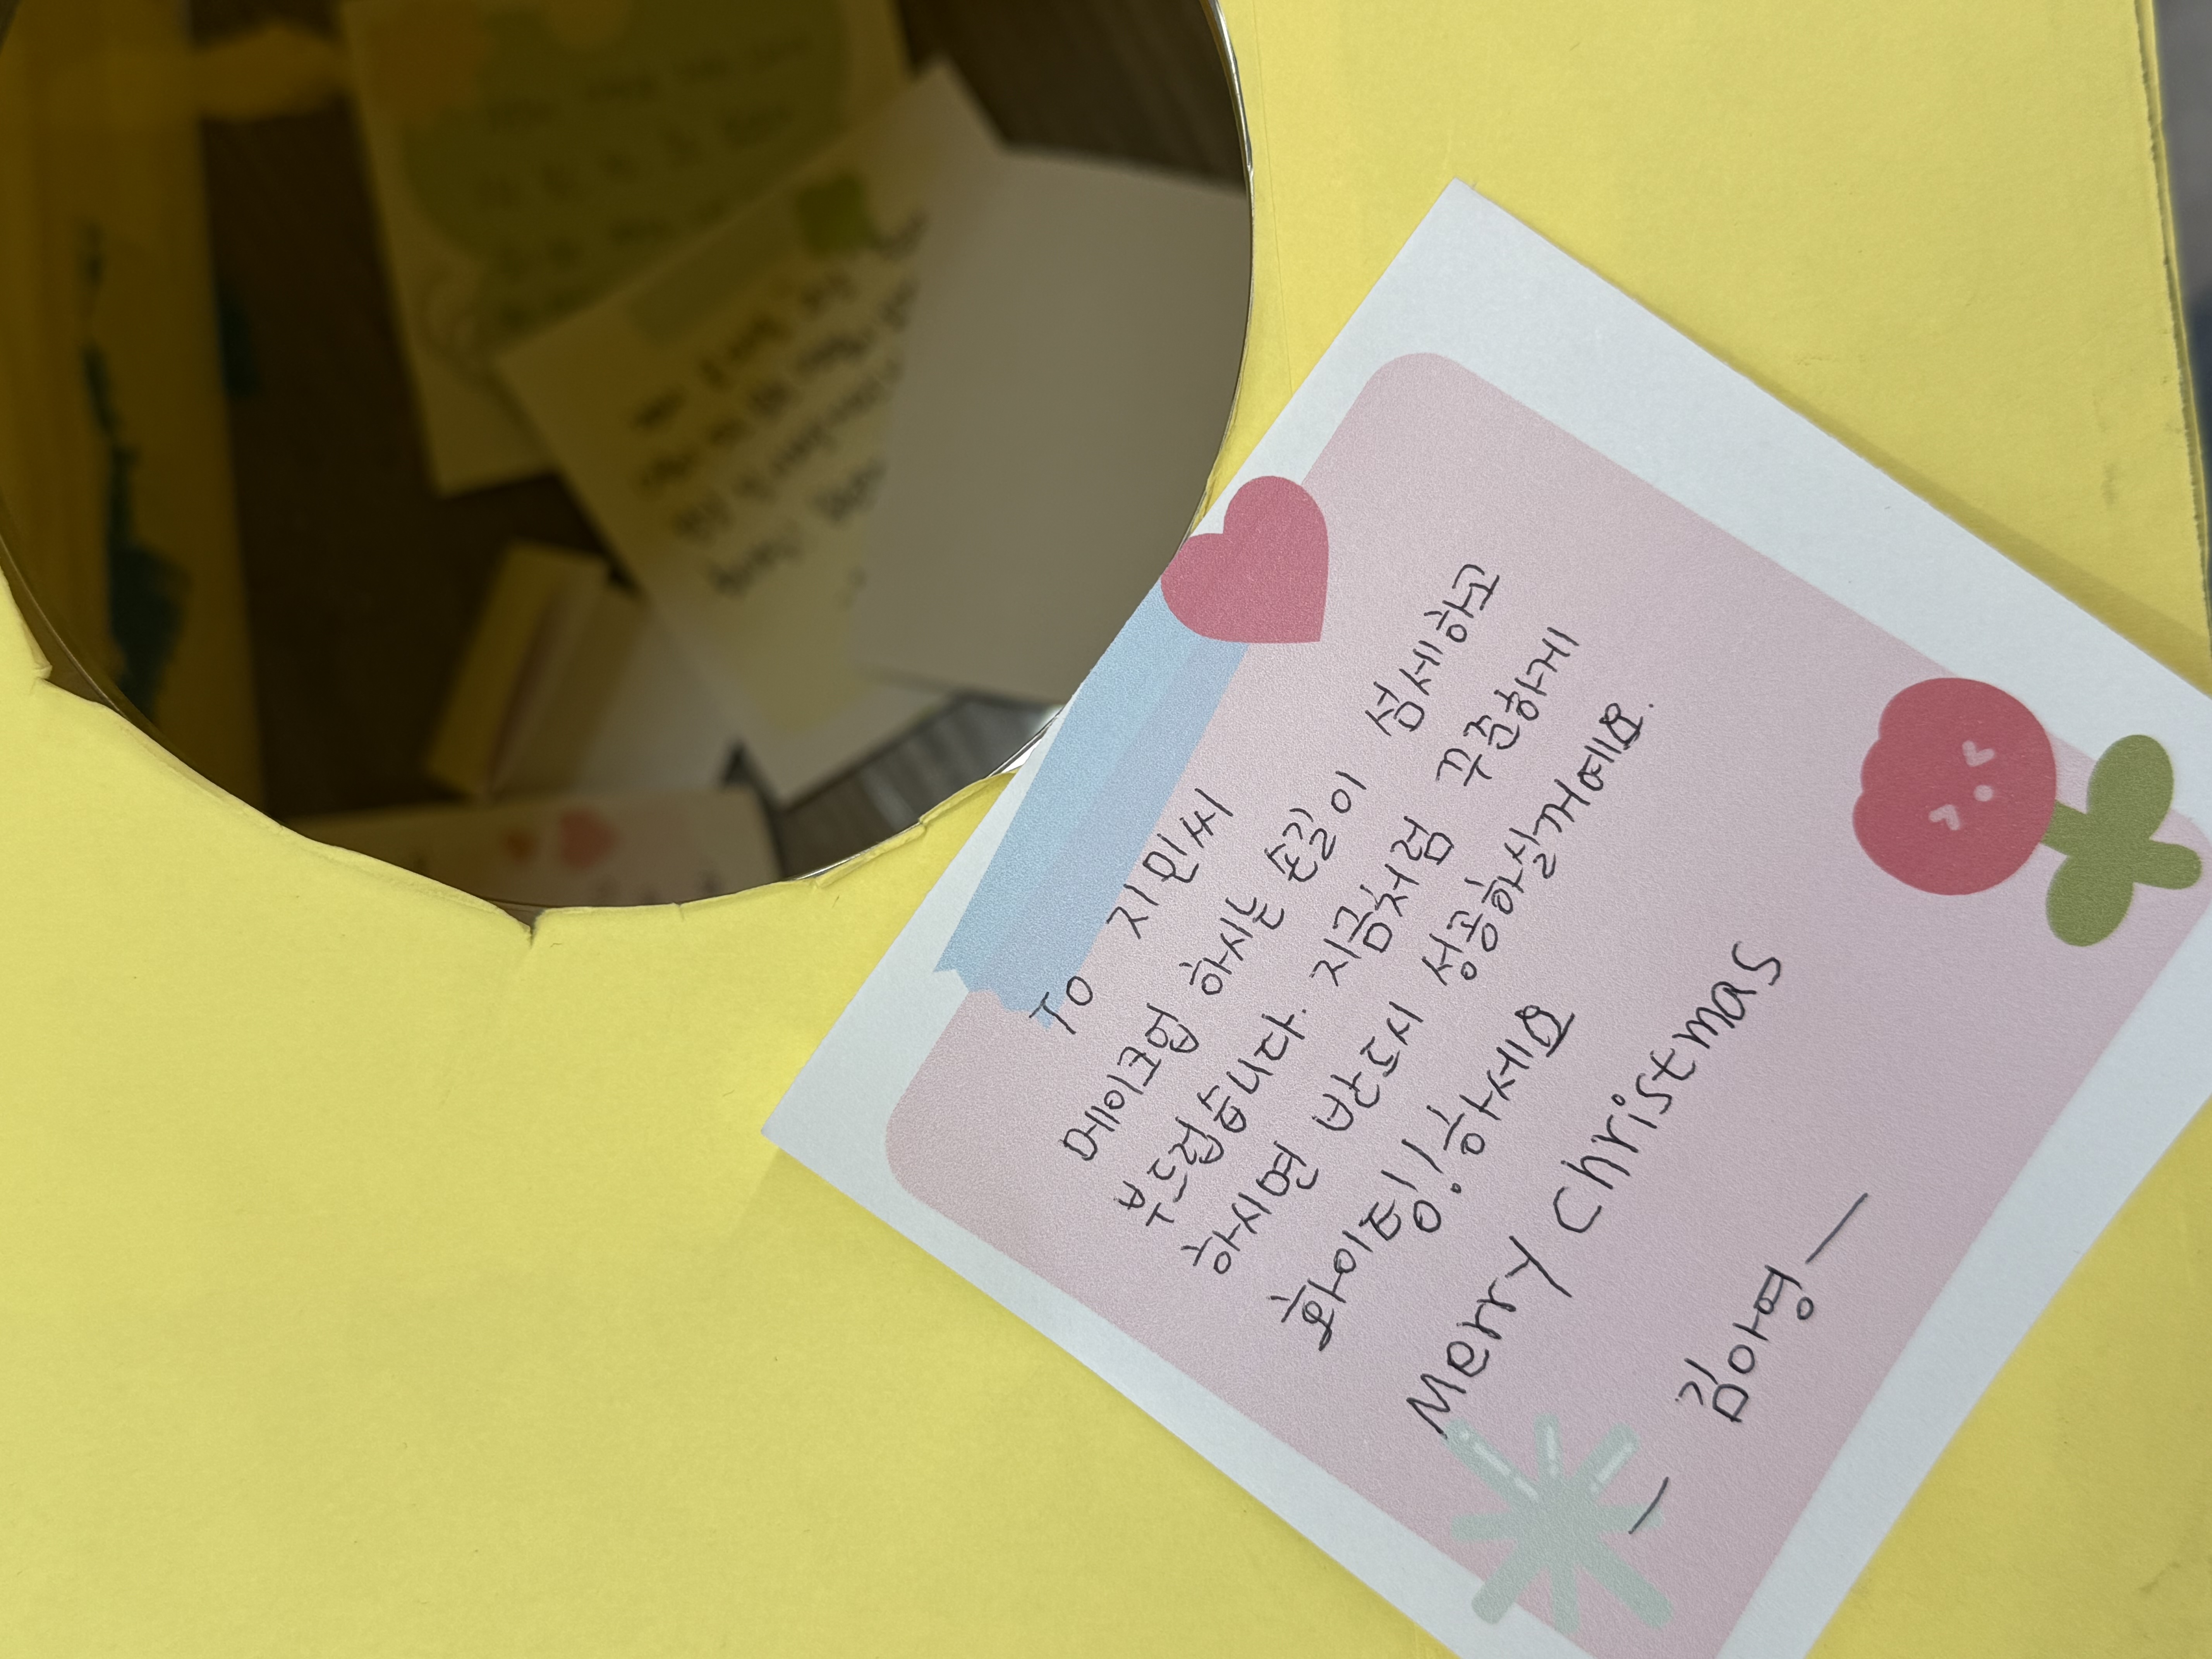 TO 지민씨
메이크업 하시는 손길이 섬세하고
부드럽습니다. 지금처럼 꾸준하게
하시면 반드시 성공하실꺼예요.
화이팅! 하세요
Merry Christmas
— 김아영 —